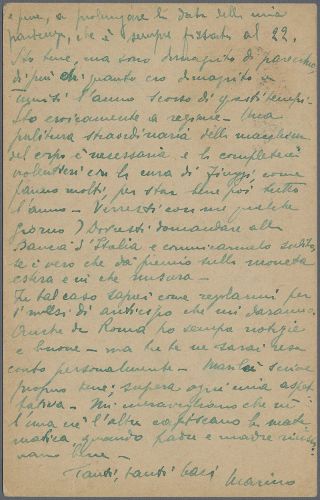 e pure, a prolungare la data della mia
partenza, che è sempre fissata al 22.
Sto bene, ma sono dimagrito di parecchio,
di più di quanto ero dimagrito a
l'anno scorso di questi tempi
Sto eroicamente a regime - Una
pulitura straordinaria della macchina
del corpo è necessaria e la completerei
volentieri con la cura di Fiuggi, come
fanno molti, per star bene poi tutto
l'anno - Verresti con me qualche
giorno? Dovresti domandare alla
Banca d'Italia e comunicarmelo subito,
se è vero che dà premio sulla moneta
estera e in che misura -
In tal caso saprei come regolarmi per
di anticipo che mi daranno.
Anche da Roma ho sempre notizie
e buone - ma tu te ne sarai resa
conto personalmente - scrive
proprio bene; supera ogni mia aspet-
tativa - Mi meravigliano che nè
l'una nè l'altro capiscano la mate-
matica quando padre e madre
bene -
Tanti, tanti baci Marino